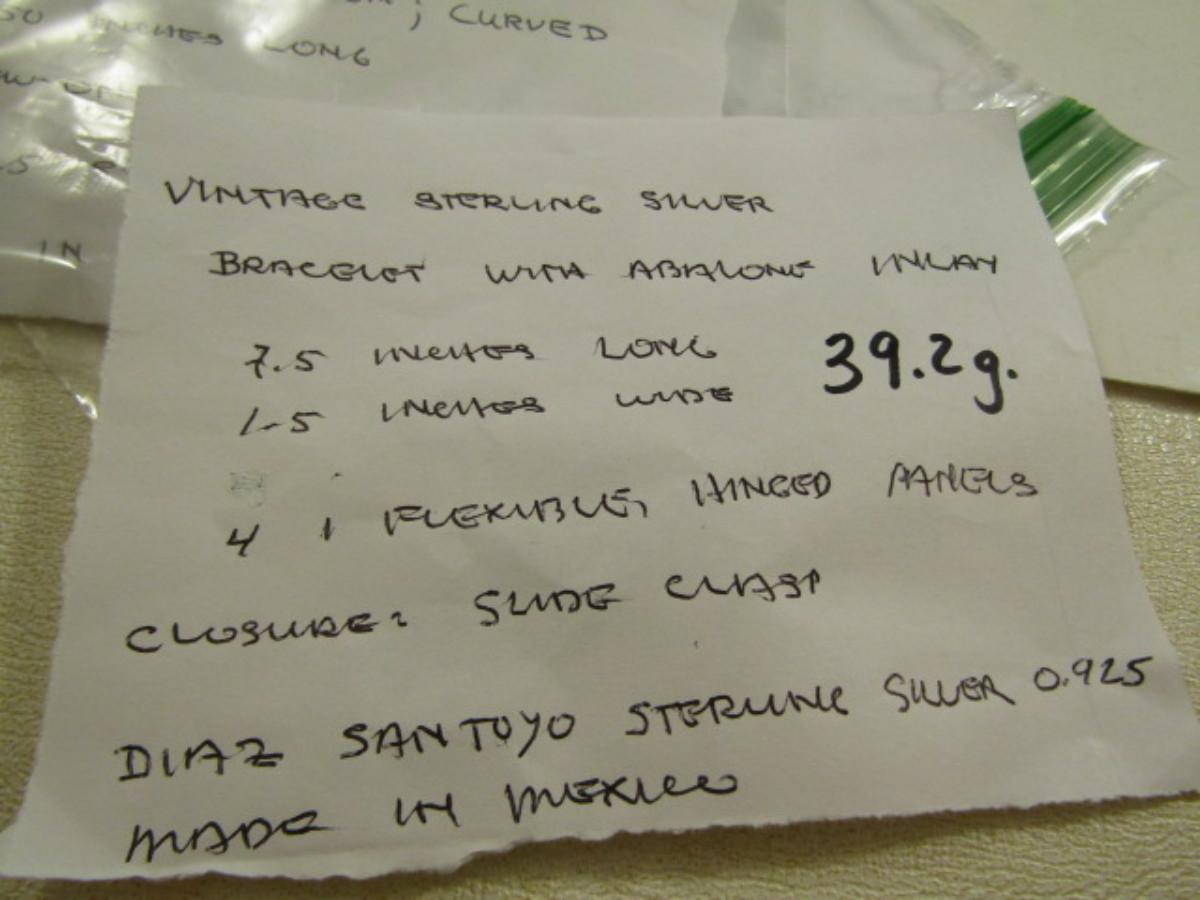 ; CURVED
INCHES LONG
IN
VINTAGE STERLING SILVER
BRACELET WITH ABALONE INLAY
7.5 INCHES LONG 39.2g.
1.5 INCHES WIDE
4 FLEXIBLE, HINGED PANELS
CLOSURE: SLIDE CLASP
DIAZ SANTOYO STERLING SILVER 0.925
MADE IN MEXICO